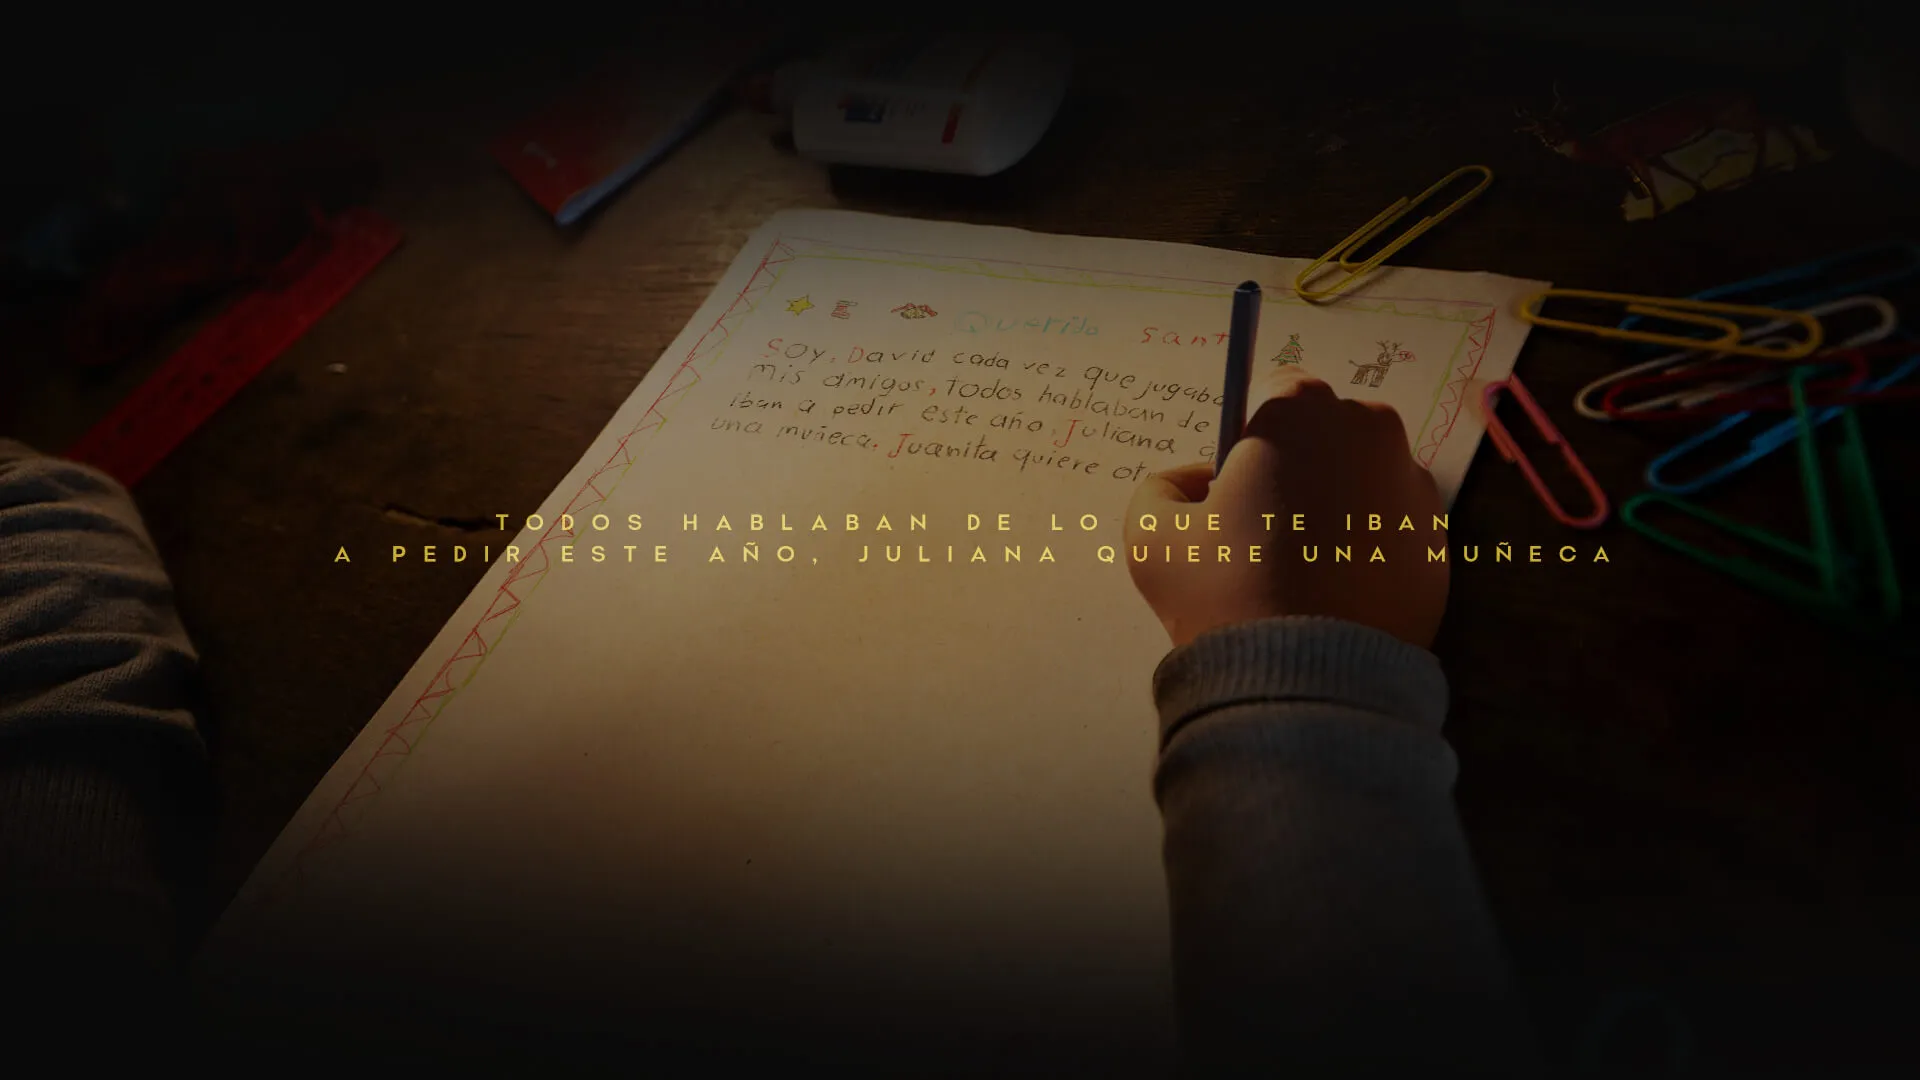 Querido Sant
Soy, David cada vez que jugaba
Mis amigos, todos hablaban de
iban a pedir este año, Juliana q
una muñeca. Juanita quiere otr
TODOS HABLABAN DE LO QUE TE IBAN
A PEDIR ESTE AÑO, JULIANA QUIERE UNA MUÑECA